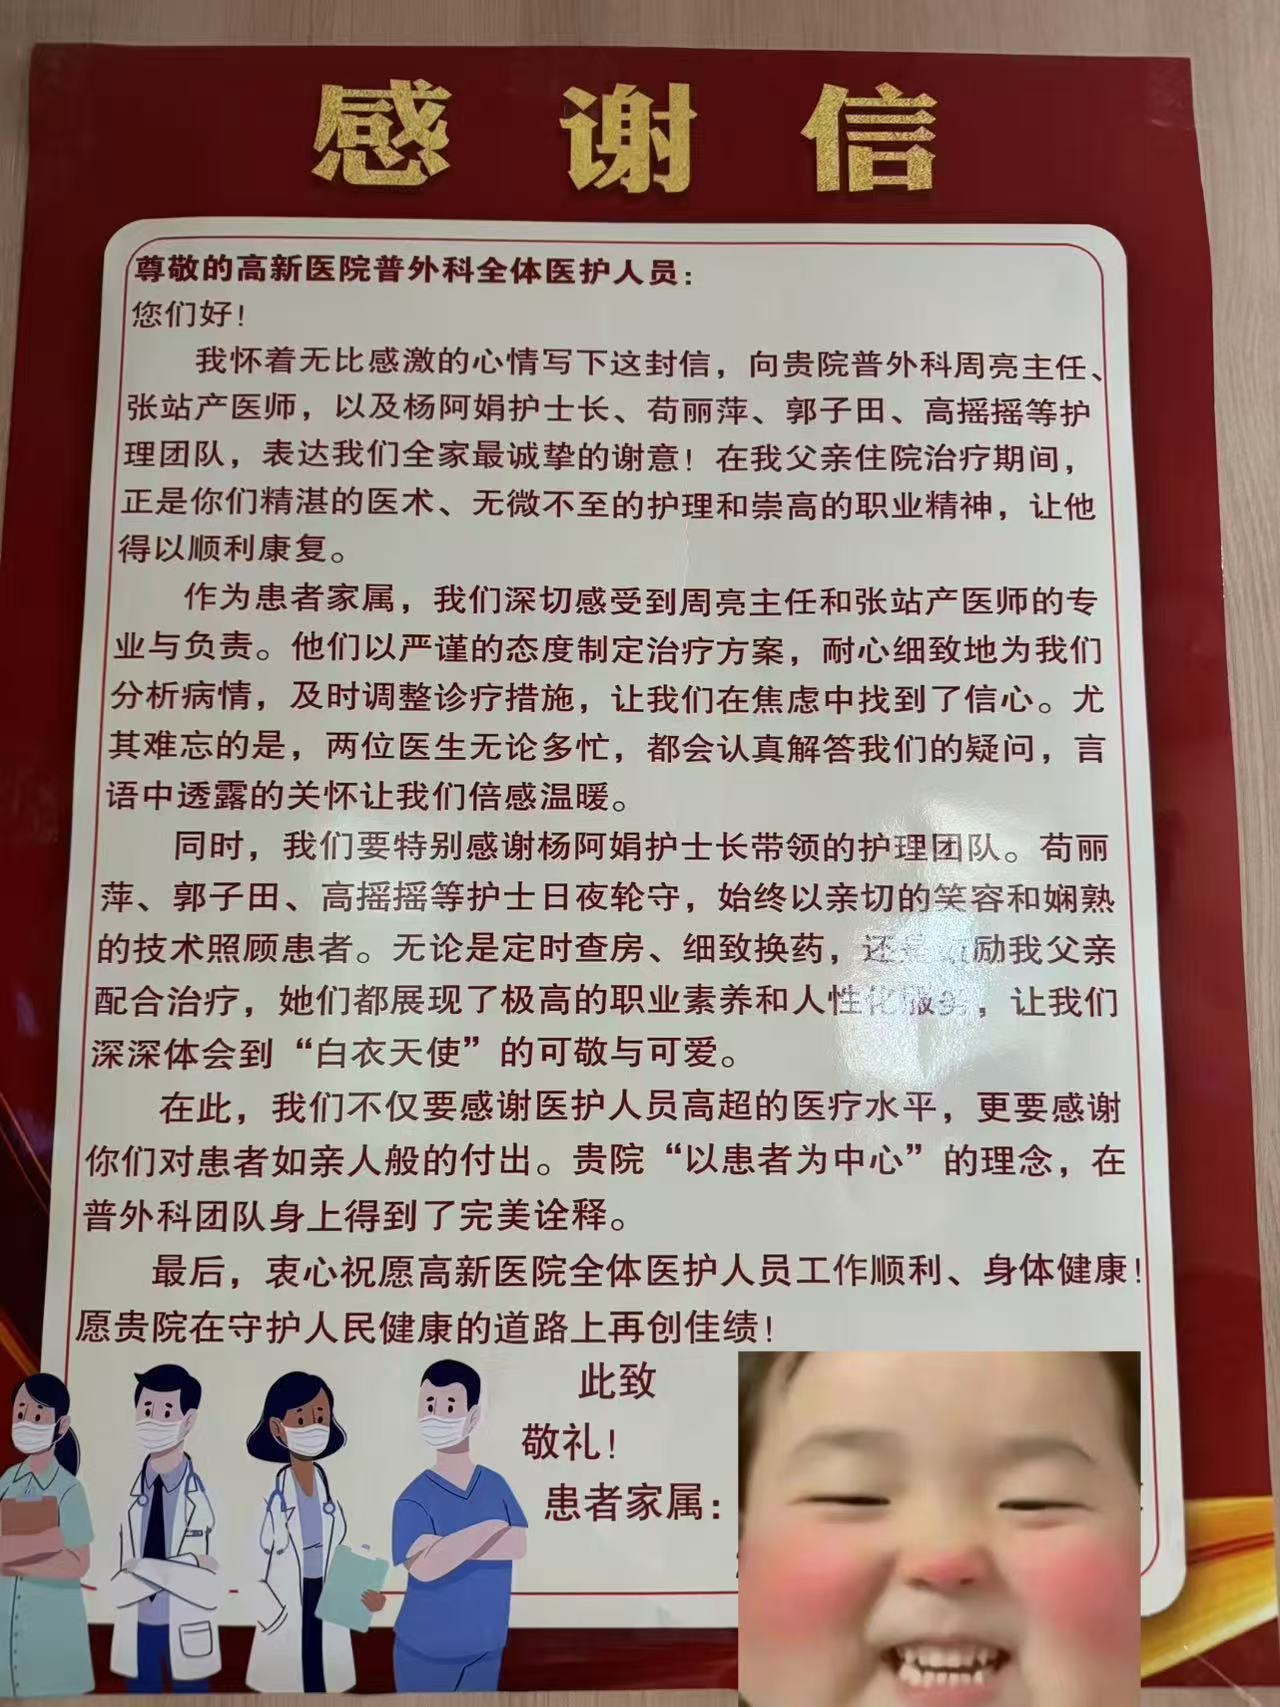 感谢信
尊敬的高新医院普外科全体医护人员：
您们好！
我怀着无比感激的心情写下这封信，向贵院普外科周亮主任、
张站产医师，以及杨阿娟护士长、苟丽萍、郭子田、高摇摇等护
理团队，表达我们全家最诚挚的谢意！在我父亲住院治疗期间，
正是你们精湛的医术、无微不至的护理和崇高的职业精神，让他
得以顺利康复。
作为患者家属，我们深切感受到周亮主任和张站产医师的专
业与负责。他们以严谨的态度制定治疗方案，耐心细致地为我们
分析病情，及时调整诊疗措施，让我们在焦虑中找到了信心。尤
其难忘的是，两位医生无论多忙，都会认真解答我们的疑问，言
语中透露的关怀让我们倍感温暖。
同时，我们要特别感谢杨阿娟护士长带领的护理团队。苟丽
萍、郭子田、高摇摇等护士日夜轮守，始终以亲切的笑容和娴熟
的技术照顾患者。无论是定时查房、细致换药，还是励我父亲
配合治疗，她们都展现了极高的职业素养和人性化服务，让我们
深深体会到“白衣天使”的可敬与可爱。
在此，我们不仅要感谢医护人员高超的医疗水平，更要感谢
你们对患者如亲人般的付出。贵院“以患者为中心”的理念，在
普外科团队身上得到了完美诠释。
最后，衷心祝愿高新医院全体医护人员工作顺利、身体健康！
愿贵院在守护人民健康的道路上再创佳绩！
此致
敬礼！
患者家属：